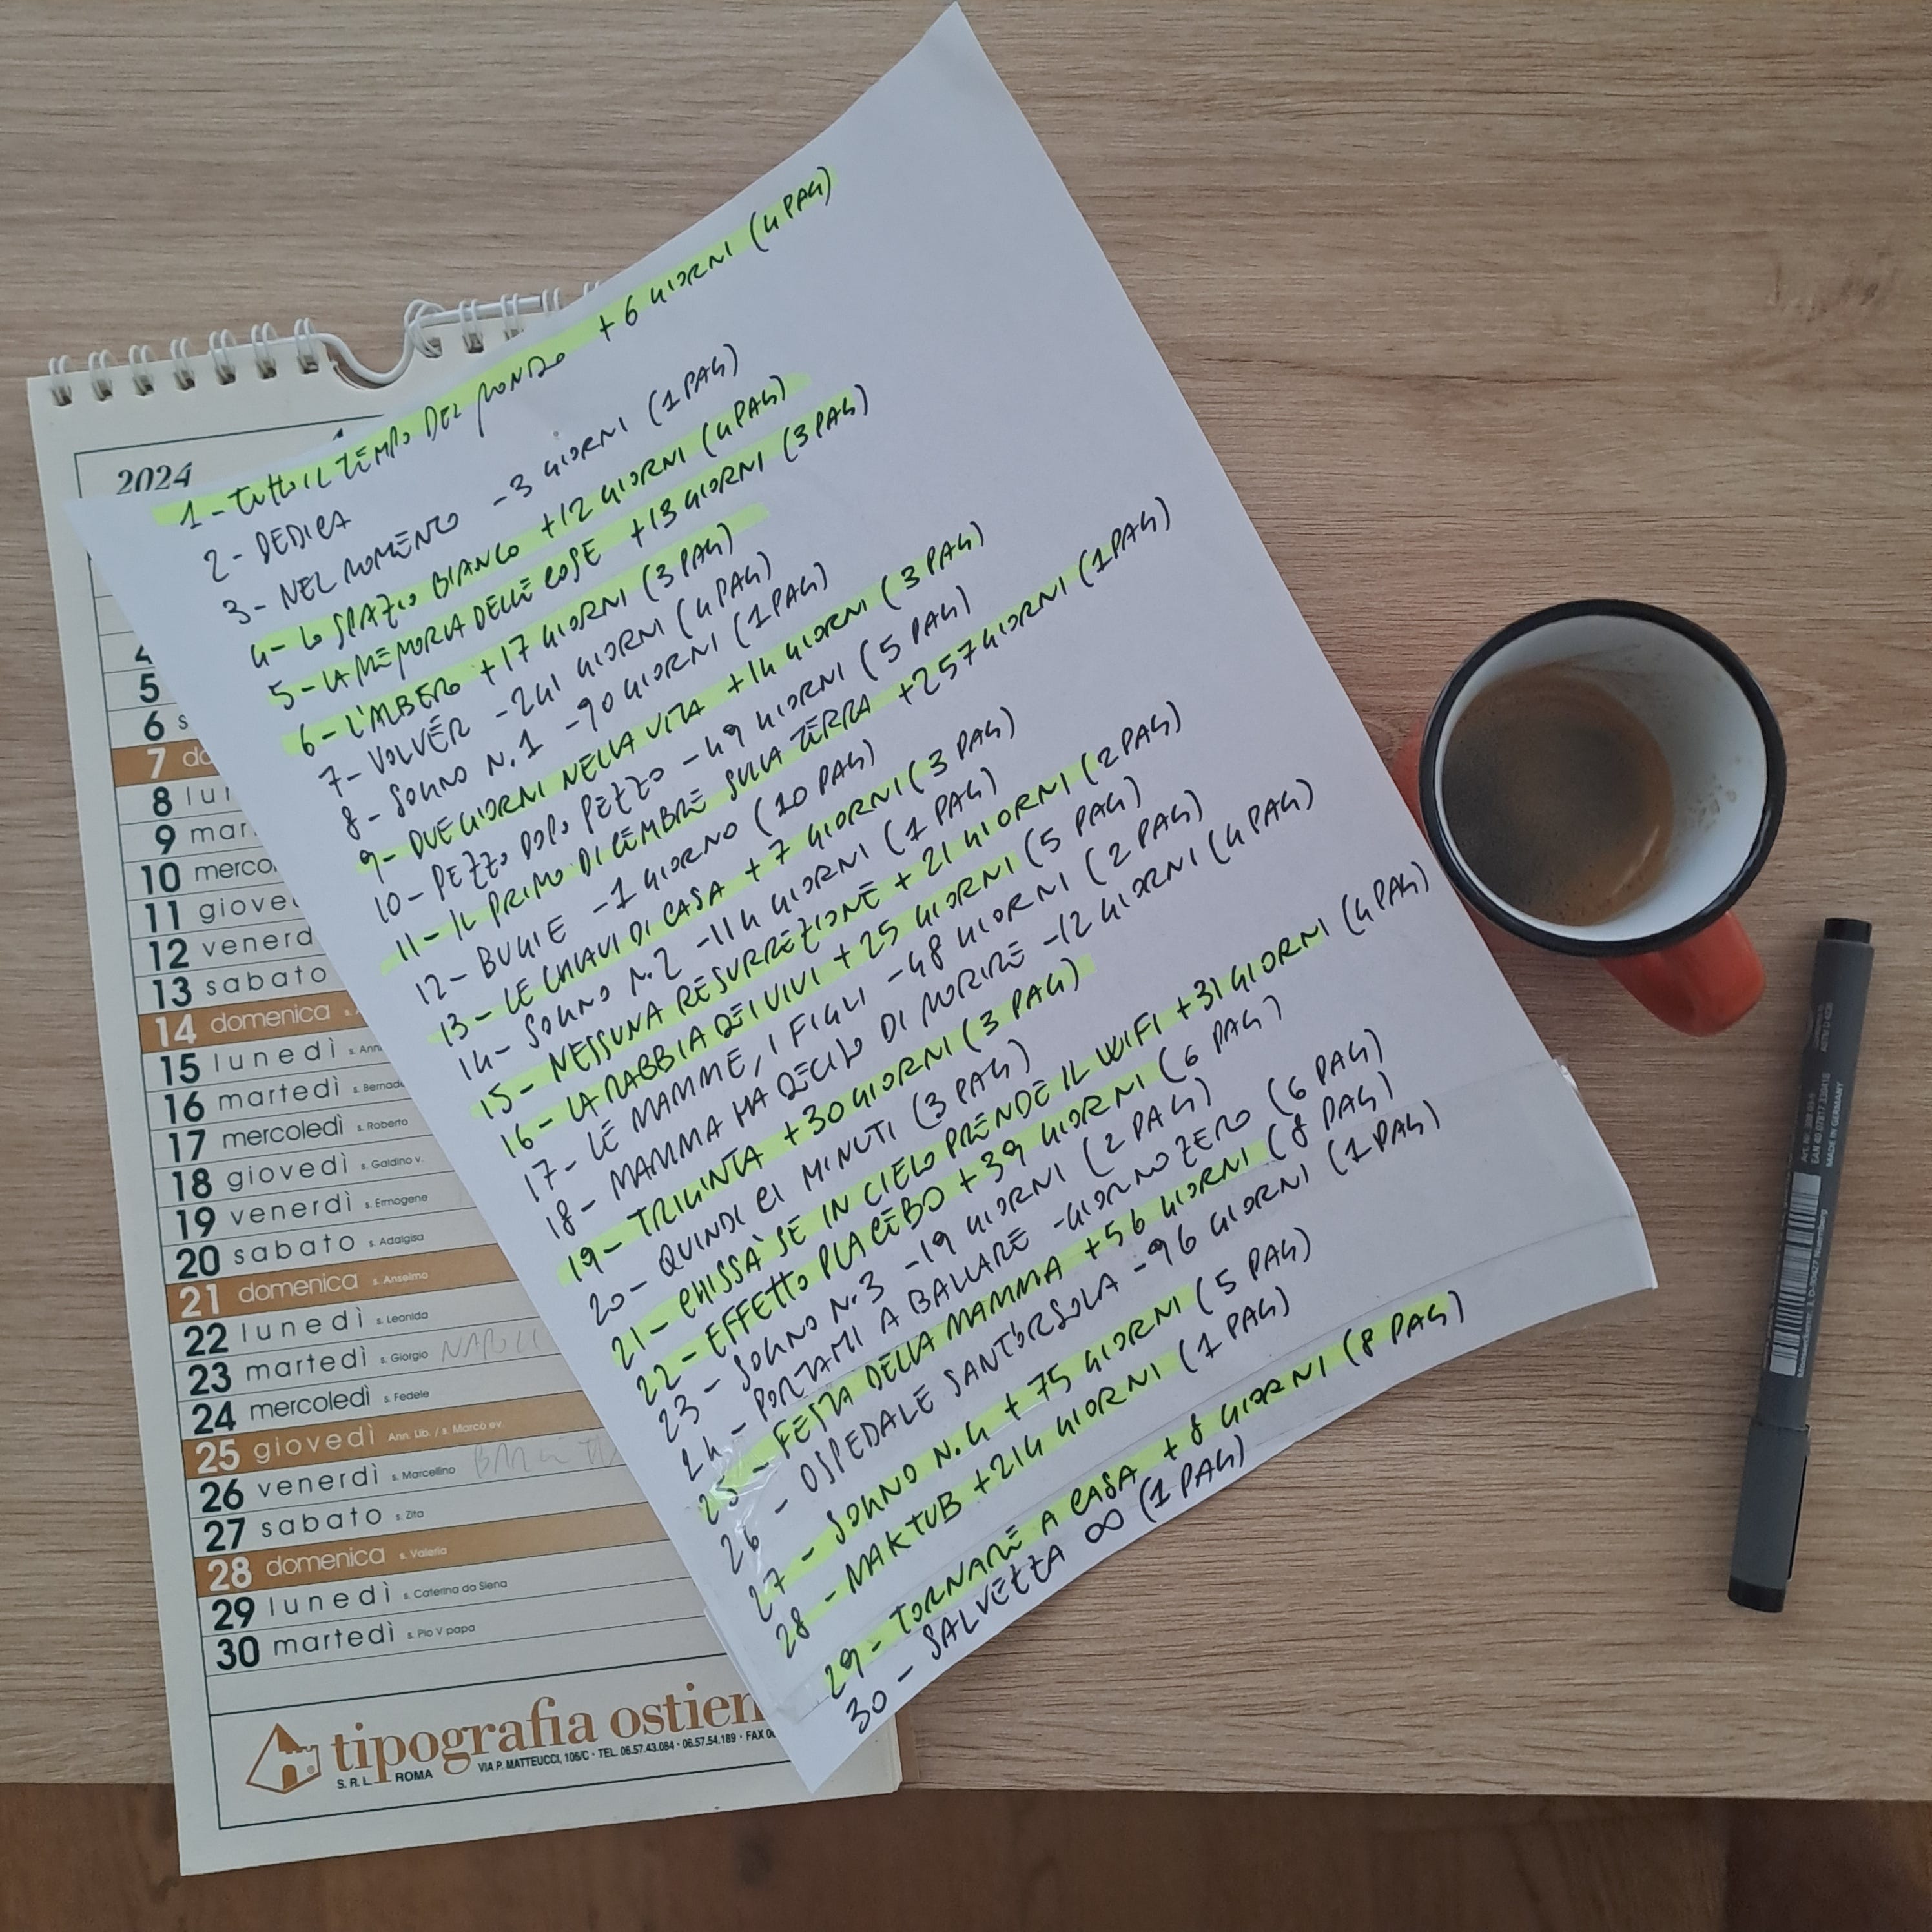 1 - TUTTO IL TEMPO DEL MONDO + 6 GIORNI (4 PAG)
2 - DEDICA
3 - NEL MOMENTO - 3 GIORNI (1 PAG)
4 - LO SPAZIO BIANCO + 12 GIORNI (4 PAG)
5 - LA MEMORIA DELLE COSE + 13 GIORNI (3 PAG)
6 - L'ALBERO + 17 GIORNI (3 PAG)
7 - VOLVÉR - 241 GIORNI (4 PAG)
8 - SOGNO N. 1 - 90 GIORNI (1 PAG)
9 - DUE GIORNI NELLA VITA + 14 GIORNI (3 PAG)
10 - PEZZO DOPO PEZZO - 49 GIORNI (5 PAG)
11 - IL PRIMO DICEMBRE SULLA TERRA + 257 GIORNI (1 PAG)
12 - BUGIE - 1 GIORNO (10 PAG)
13 - LE CHIAVI DI CASA + 7 GIORNI (3 PAG)
14 - SOGNO N. 2 - 114 GIORNI (1 PAG)
15 - NESSUNA RESURREZIONE + 21 GIORNI (2 PAG)
16 - LA RABBIA DEI VIVI + 25 GIORNI (5 PAG)
17 - LE MAMME, I FIGLI - 48 GIORNI (2 PAG)
18 - MAMMA HA DECISO DI MORIRE - 12 GIORNI (4 PAG)
19 - TRIGINTA + 30 GIORNI (3 PAG)
20 - QUINDICI MINUTI (3 PAG)
21 - CHISSÀ SE IN CIELO PRENDE IL WIFI + 31 GIORNI (4 PAG)
22 - EFFETTO PLACEBO + 39 GIORNI (6 PAG)
23 - SOGNO N. 3 - 19 GIORNI (2 PAG)
24 - PORTAMI A BALLARE - GIORNO ZERO (6 PAG)
25 - FESTA DELLA MAMMA + 56 GIORNI (8 PAG)
26 - OSPEDALE SANT'ORSOLA - 96 GIORNI (1 PAG)
27 - SOGNO N. 4 + 75 GIORNI (5 PAG)
28 - MAKTUB + 214 GIORNI (1 PAG)
29 - TORNARE A CASA + 8 GIORNI (8 PAG)
30 - SALVEZZA ∞ (1 PAG)
2024
4
5
6 s
7 do
8 lun
9 mar
10 merco
11 giove
12 venerd
13 sabato
14 domenica
15 lunedì s. Ann
16 martedì s. Bernade
17 mercoledì s. Roberto
18 giovedì s. Galdino v.
19 venerdì s. Ermogene
20 sabato s. Adalgisa
21 domenica s. Anselmo
22 lunedì s. Leonida
23 martedì s. Giorgio NAPOLI
24 mercoledì s. Fedele
25 giovedì Ann. Lib. / s. Marco ev.
26 venerdì s. Marcellino
27 sabato s. Zita
28 domenica s. Valeria
29 lunedì s. Caterina da Siena
30 martedì s. Pio V papa
tipografia ostien
S.R.L. ROMA VIA P. MATTEUCCI, 106/C · TEL. 06.57.43.084 · 06.57.54.189 · FAX
MADE IN GERMANY